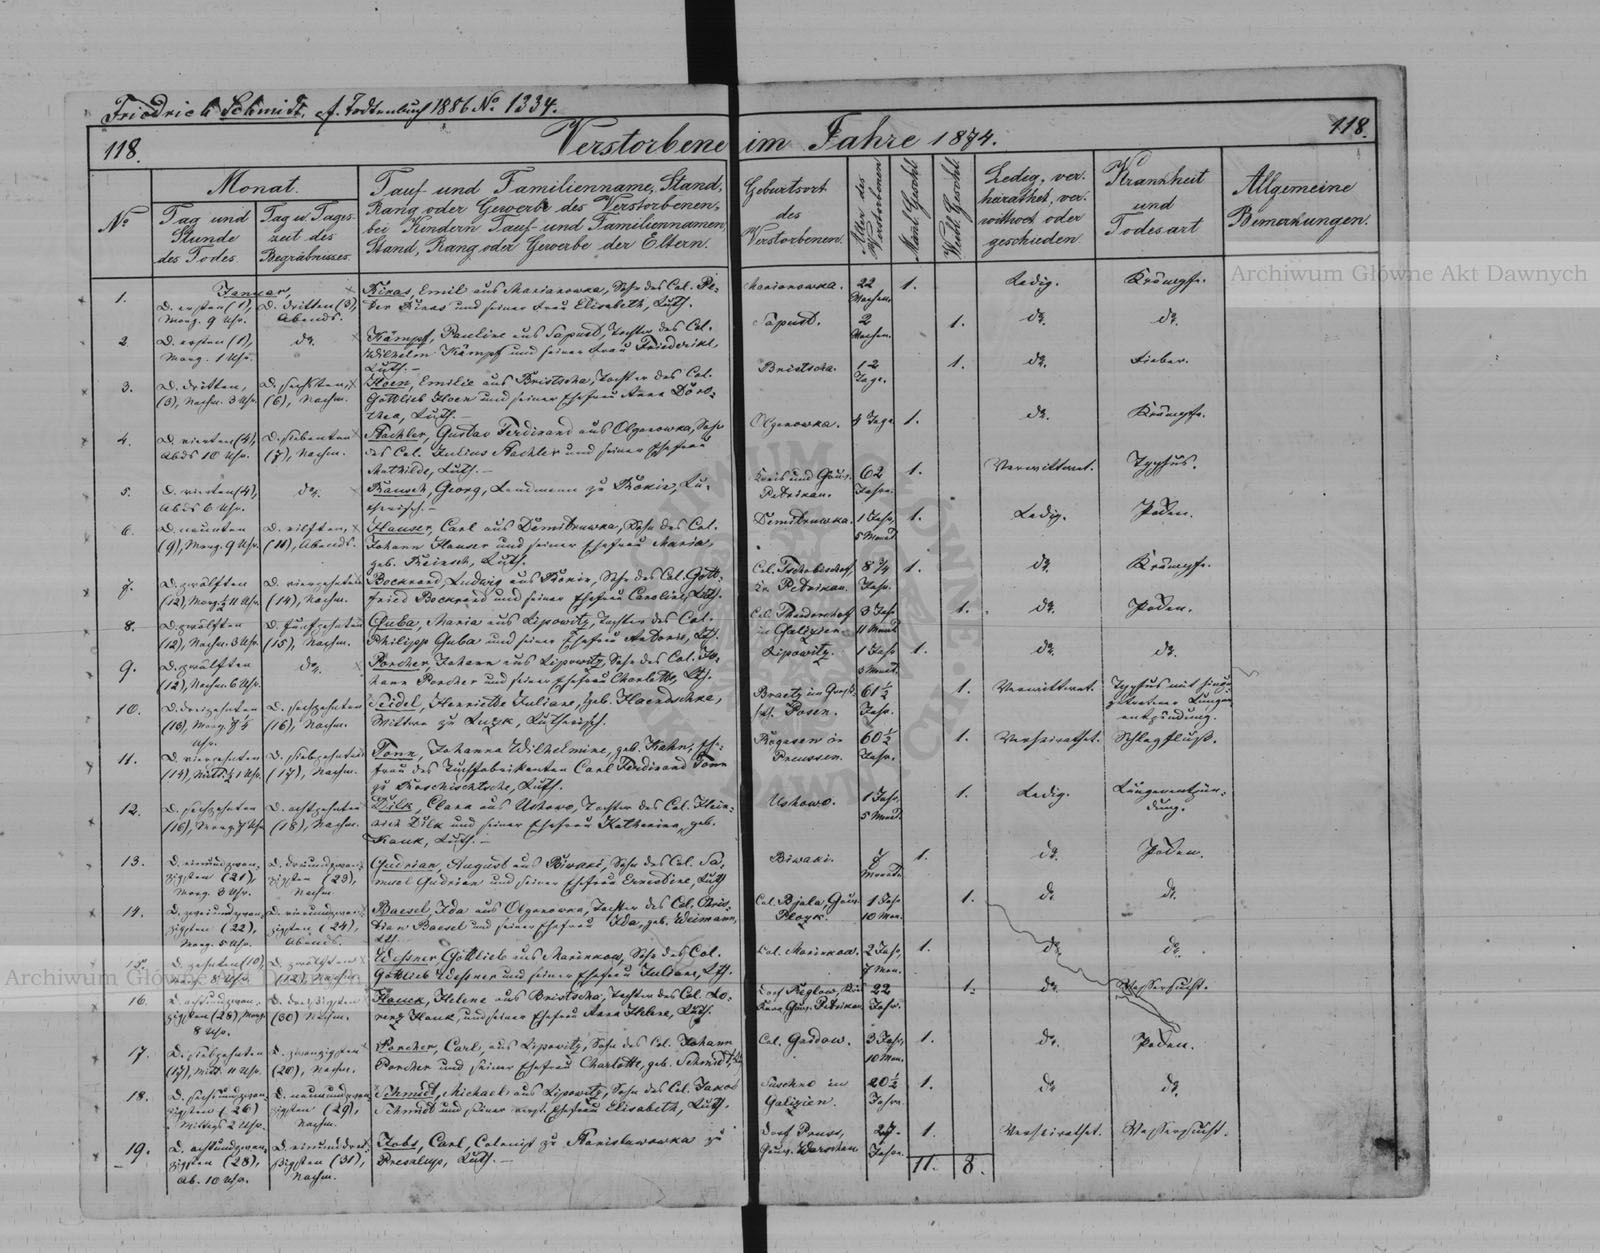 Friedrich Schmidt, cf. Todtenbuch 1886 No 1334.
118.
Verstorbene im Jahre 1874.
118.
No
Monat.
Tag und Stunde des Todes.
Tag u. Tageszeit des Begräbnisses.
Tauf und Familienname, Stand, Rang oder Gewerbe des Verstorbenen, bei Kindern Tauf- und Familiennamen, Stand, Rang oder Gewerbe der Eltern.
Geburtsort des Verstorbenen.
Alter des Verstorbenen
Männl. Geschl.
Weibl. Geschl.
Ledig, verheirathet, verwittwet oder geschieden.
Krankheit und Todesart
Allgemeine Bemerkungen.
Januar,
1.
D. ersten (1), Morg. 9 Uhr.
D. dritten (3), Abends.
Kiras, Emil aus Marianowka, Sohn des Col. Peter Kiras und seiner Frau Elisabeth, Luth.
Marianowka.
22 Wochen.
1.
Ledig.
Krämpfe.
2
D. ersten (1), Morg. 1 Uhr.
do.
Kämpf, Pauline aus Sapust, Tochter des Col. Wilhelm Kämpf und seiner Frau Friederike, Luth. —
Sapust.
2 Wochen.
1.
do.
do.
3.
D. dritten, (3), Nachm. 3 Uhr.
D. sechsten, (6), Nachm.
Hoen, Emilie aus Bristscha, Tochter des Col. Gottlieb Hoen und seiner Ehefrau Anna Dorothea, Luth. —
Bristscha.
12 Tage.
1.
do.
Fieber.
4.
D. vierten (4), Abds 10 Uhr.
D. siebenten (7), Nachm.
Stachler, Gustav Ferdinand aus Olganowka, Sohn des Col. Julius Stachler und seiner Ehefrau Mathilde, Luth. —
Olganowka.
8 Tage
1.
do.
Krämpfe.
5.
D. vierten (4), Abds 6 Uhr.
do.
Rausch, Georg, Landmann zu Rokin, Lutherisch. —
Kreis und Gouv. Petrikau.
62 Jahre.
1.
Verwittwet.
Typhus.
6.
D. neunten (9), Morg. 9 Uhr.
D. eilften, (11), Abends.
Hauser, Carl aus Demitruwka, Sohn des Col. Johann Hauser und seiner Ehefrau Maria, geb. Luth.
Demitruwka.
1 Jahr, 5 Monat.
1.
Ledig.
Poden.
7.
D. zwölften (12), Morg. ½ 11 Uhr.
D. vierzehnten (14), Nachm.
Bockrand, Ludwig aus Rokin, Sohn des Col. Gottfried Bockrand und seiner Ehefrau Caroline, Luth.
Kr. Petrikau.
8 ¾ Jahr.
1.
do.
Krämpfe.
8.
D. zwölften (12), Nachm. 3 Uhr.
D. fünfzehnten (15), Nachm.
Guba, Maria aus Lipowitz, Tochter des Col. Philipp Guba und seiner Ehefrau
in Galizien.
3 Jahr 11 Monat
1.
do.
Poden.
9.
D. zwölften (12), Nachm. 6 Uhr.
do.
Porcher, Johann aus Lipowitz, Sohn des Col. Johann Porcher und seiner Ehefrau Charlotte, Lth.
Lipowitz.
1 Jahr 3 Monat.
1.
do.
do.
10.
D. dreizehnten (13), Morg. ¾ Uhr.
D. sechzehnten (16), Nachm.
Seidel, Henriette Juliane, geb. Haendschke, Wittwe zu Luzk, Lutherisch.
Posen.
61½ Jahr.
1.
Verwittwet.
Typhus mit hinzugetretener Lungenentzündung.
11.
D. vierzehnten (14), Mitt. ½ 1 Uhr.
D. siebzehnten (17), Nachm.
Tonn, Johanna Wilhelmine, geb. Kahn, Ehefrau des Tuchfabrikanten Carl Ferdinand Tonn zu Roschischtsche, Luth.
Rogasen in Preussen.
60½ Jahr.
1.
Verheirathet.
Schlagfluß.
12.
D. sechzehnten (16), Morg. 7 Uhr
D. achtzehnten (18), Nachm.
Dilk, Clara aus Ushowo, Tochter des Col. Heinrich Dilk und seiner Ehefrau Katharina, geb. Hauk, Luth. —
Ushowo.
1 Jahr, 5 Monat.
1.
Ledig.
Lungenentzündung.
13.
D. einundzwanzigsten (21), Morg. 3 Uhr.
D. dreiundzwanzigsten (23), Nachm.
Gudrian, August aus Biwaki, Sohn des Col. Samuel Gudrian und seiner Ehefrau Ernestine, Luth
Biwaki.
7 Monate
1.
do.
Poden.
14.
D. zweiundzwanzigsten (22), Morg. 5 Uhr.
D. vierundzwanzigsten (24), Abends.
Baesel, Ida aus Olganowka, Tochter des Col. Christian Baesel und seiner Ehefrau Ida, geb. Weimann, Lth.
Col. Bjela, Gouv. Plozk.
1 Jahr 10 Mon.
1.
do
do.
15.
D. zehnten (10), Morg. 8 Uhr.
D. zwölften (12), Nachm.
Wessner, Gottlieb aus Marinkow, Sohn des Col. Gottlieb Wessner und seiner Ehefrau Juliane, Lth.
Col. Marinkow.
2 Jahr, 7 Mon.
1.
do.
do.
16.
D. achtundzwanzigsten (28), Morg. 8 Uhr.
D. dreißigsten (30) Nachm.
Hauck, Helene aus Bristscha, Tochter des Col. Lorenz Hauk, und seiner Ehefrau Anna Helene, Luth.
Gouv. Petrikau.
22 Jahr.
1.
do
Wassersucht.
17.
D. siebzehnten (17), Mitt. 11 Uhr.
D. zwanzigsten (20), Nachm.
Porcher, Carl, aus Lipowitz, Sohn des Col. Johann Porcher und seiner Ehefrau Charlotte, geb. Schmidt,
Col. Gaddow.
3 Jahr, 10 Mon.
1.
do.
Poden.
18.
D. sechsundzwanzigsten (26) Mittags 2 Uhr.
D. neunundzwanzigsten (29), Nachm.
Schmidt, Michael aus Lipowitz, Sohn des Col. Jakob Schmidt und seiner verst. Ehefrau Elisabeth, Luth.
Suschno in Galizien.
20½ Jahre
1.
do
do.
19.
D. achtundzwanzigsten (28), Ab. 10 Uhr.
D. einunddreißigsten (31), Nachm.
Jobs, Carl, Colonist zu Stanislawowka zu Luth. —
Gouv. Warschau
27. Jahre.
1.
Verheirathet.
Wassersucht.
11.
8.
Archiwum Główne Akt Dawnych
Archiwum Główne Akt Dawnych